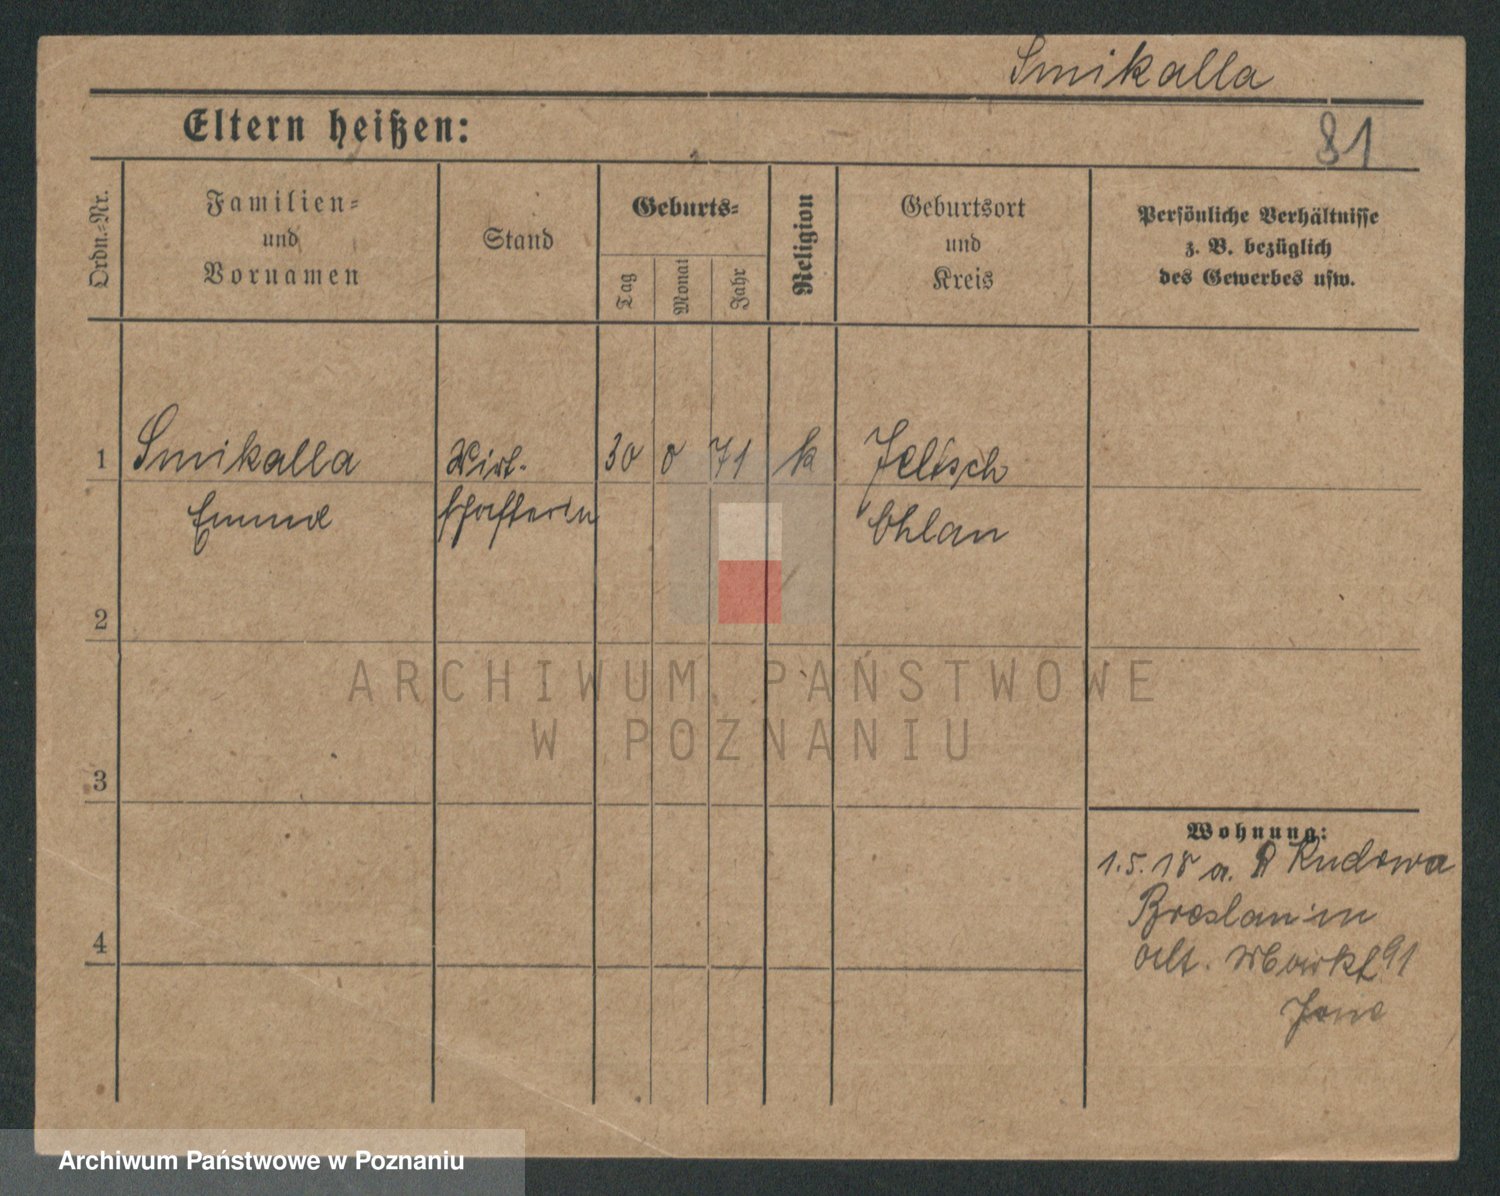 Smikalla
Eltern heißen:
81
Ordn.-Nr.
Familien-
und
Vornamen
Stand
Geburts-
Tag
Monat
Jahr
Religion
Geburtsort
und
Kreis
Persönliche Verhältnisse
z. B. bezüglich
des Gewerbes usw.
1
Smikalla
Emma
Wirt-
schafterin
30
71
k
Jeltsch
Ohlau
2
3
4
Wohnung:
1.5.18 a. Kudowa
Breslau in
Alt. Markt 91
ARCHIWUM PAŃSTWOWE
W POZNANIU
Archiwum Państwowe w Poznaniu